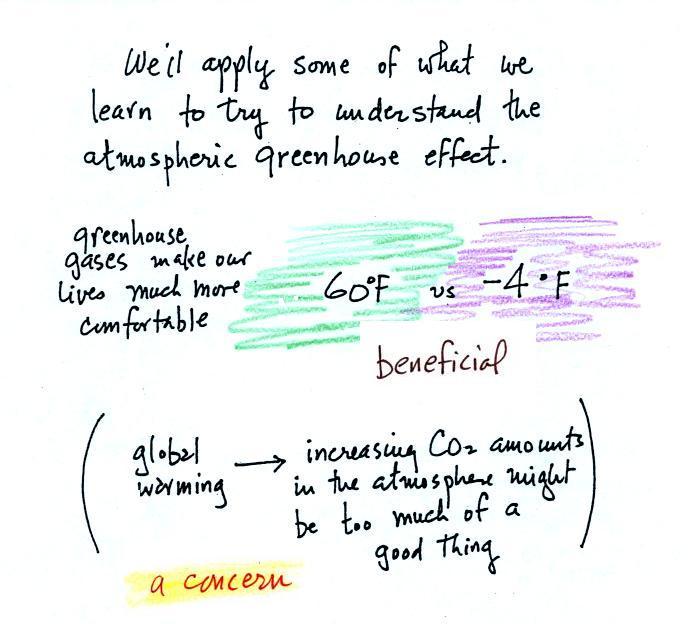 We'll apply some of what we
learn to try to understand the
atmospheric greenhouse effect.
greenhouse
gases make our
lives much more
comfortable
60°F vs -4°F
beneficial
global
warming
→ increasing CO₂ amounts
in the atmosphere might
be too much of a
good thing
a concern